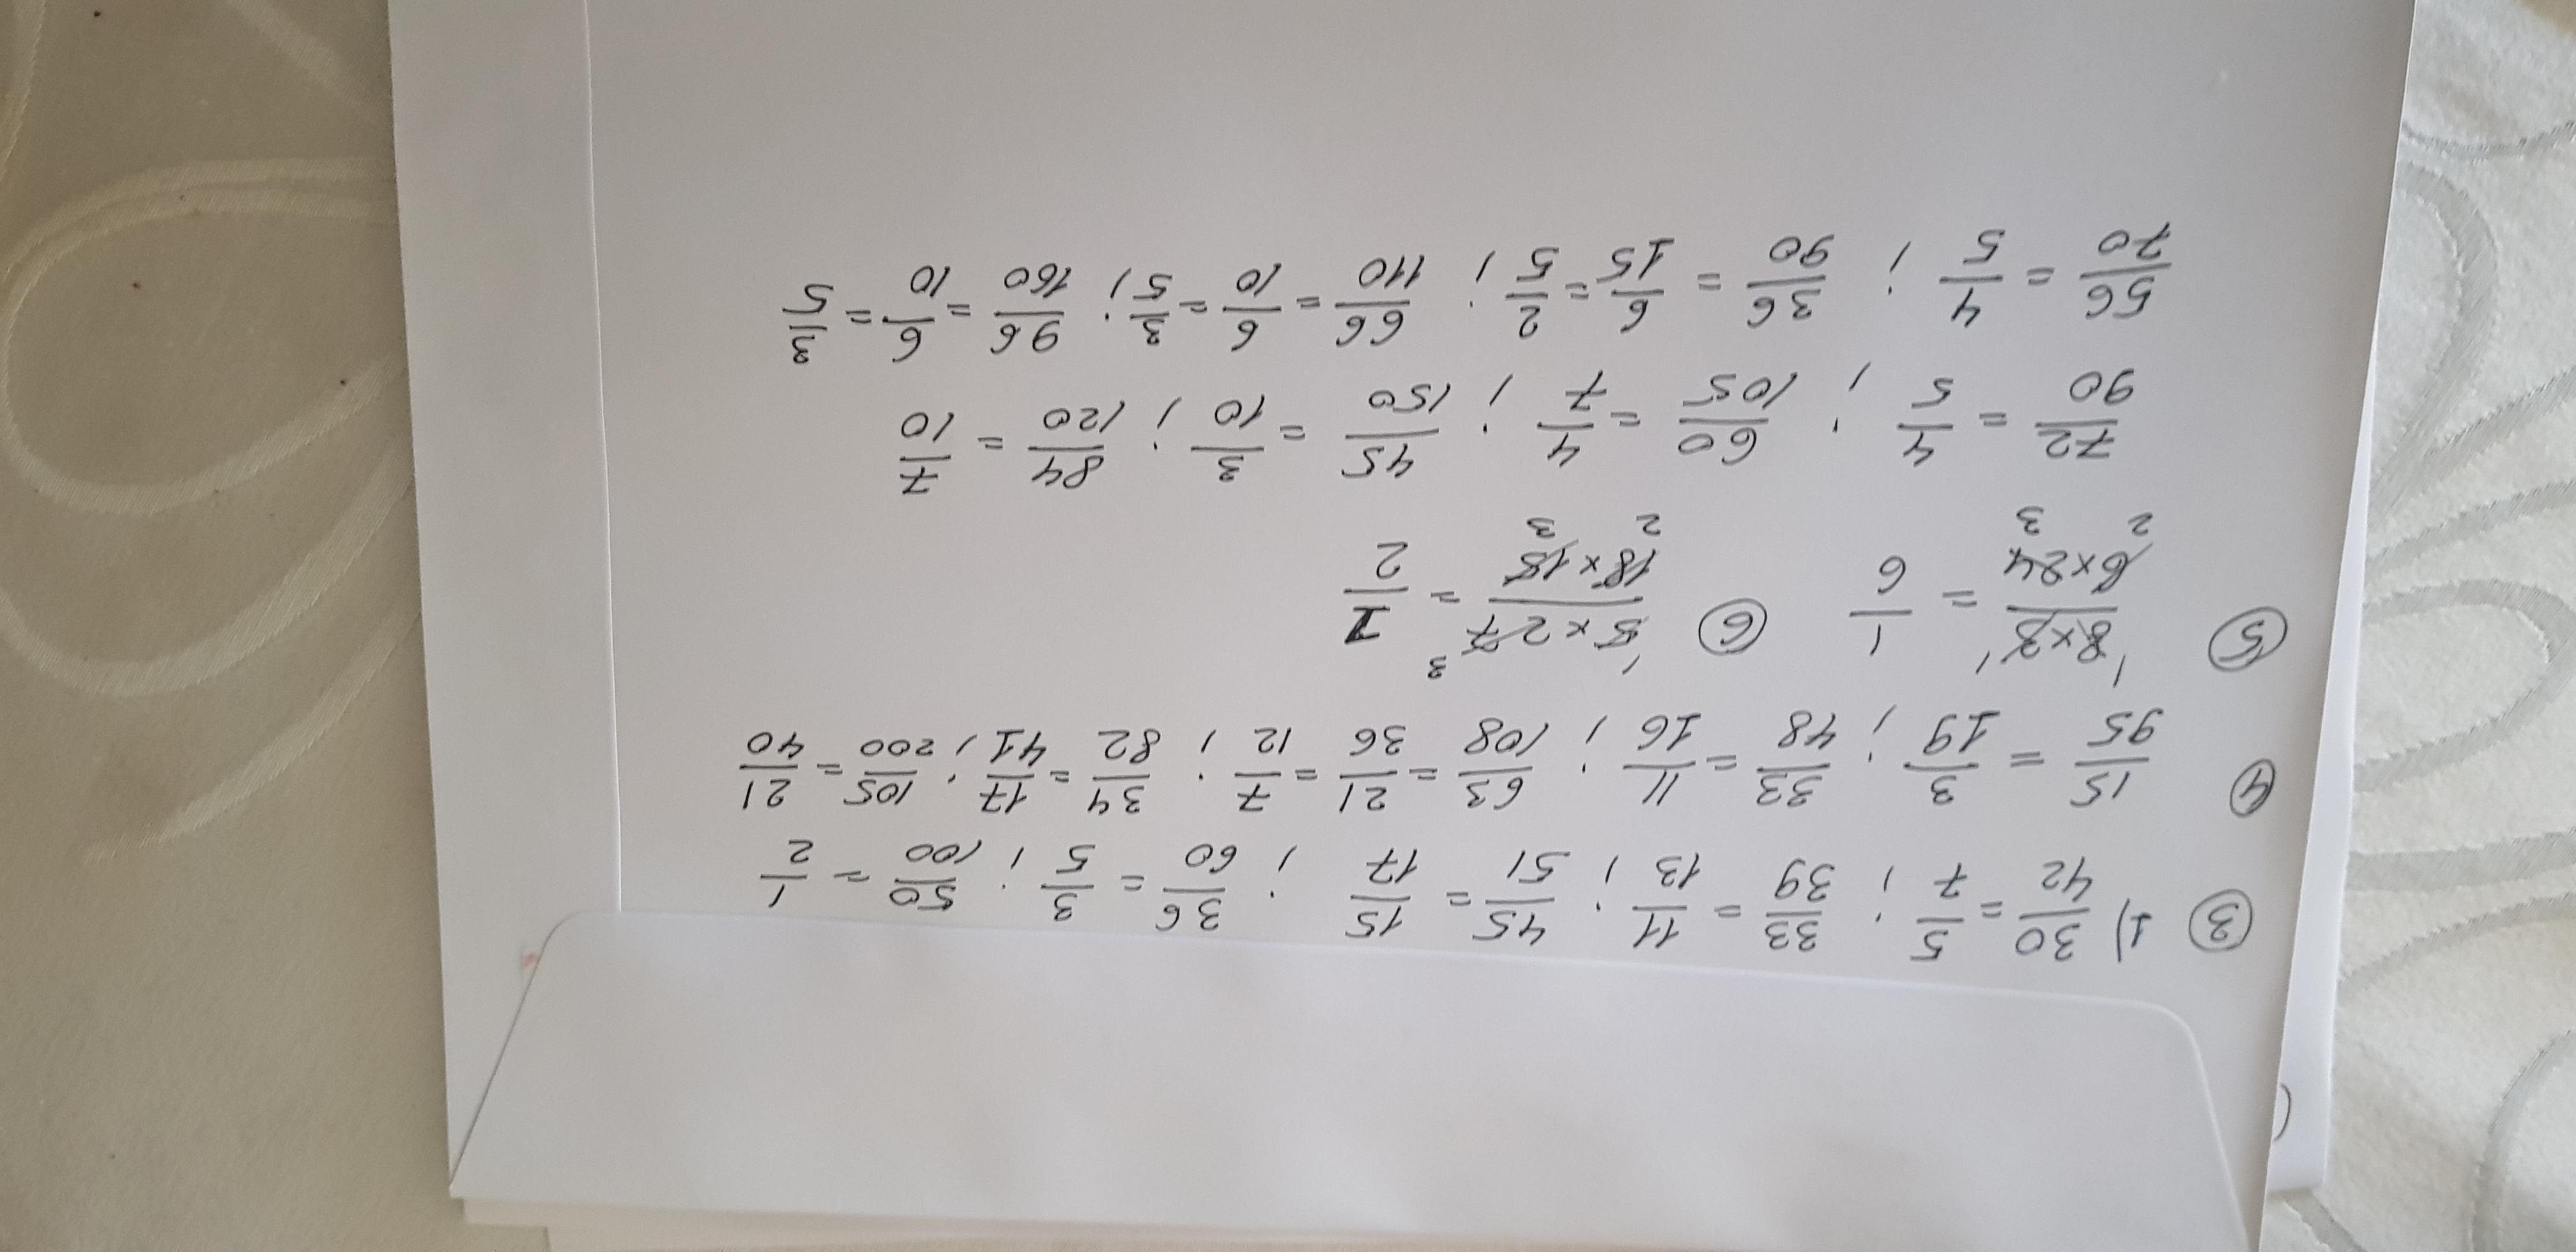 ③ 1) 30/42 = 5/7 ; 33/39 = 11/13 ; 45/51 = 15/17 ; 36/60 = 3/5 ; 50/100 = 1/2
④ 15/95 = 3/19 ; 33/48 = 11/16 ; 63/108 = 21/36 = 7/12 ; 34/82 = 17/41 ; 105/200 = 21/40
⑤ 8×3/6×24 = 1/6 ⑥ 5×27/18×15 = 1/2
72/90 = 4/5 ; 60/105 = 4/7 ; 45/150 = 3/10 ; 84/120 = 7/10
56/70 = 4/5 ; 36/90 = 6/15 = 2/5 ; 66/110 = 6/10 = 3/5 ; 96/160 = 6/10 = 3/5